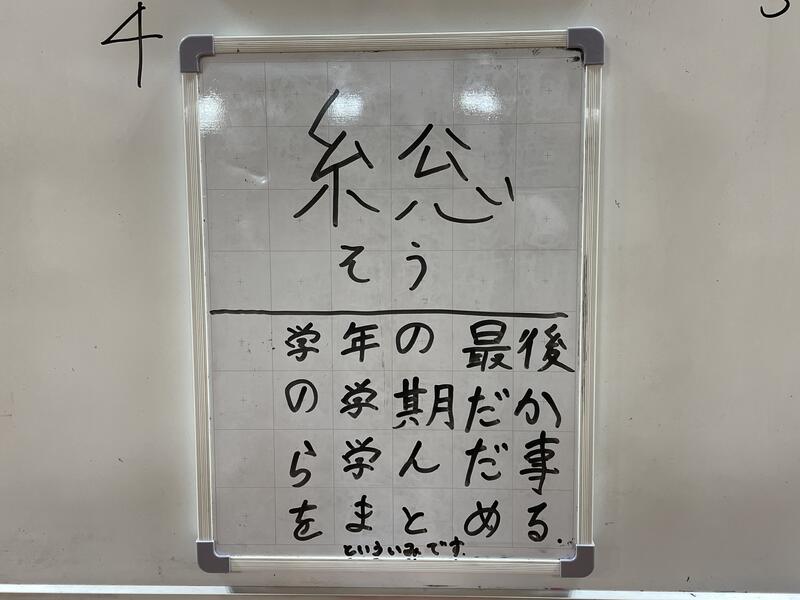 4
総
そう
学年の最後
の学期だか
ら学んだ事
をまとめる.
といういみです.